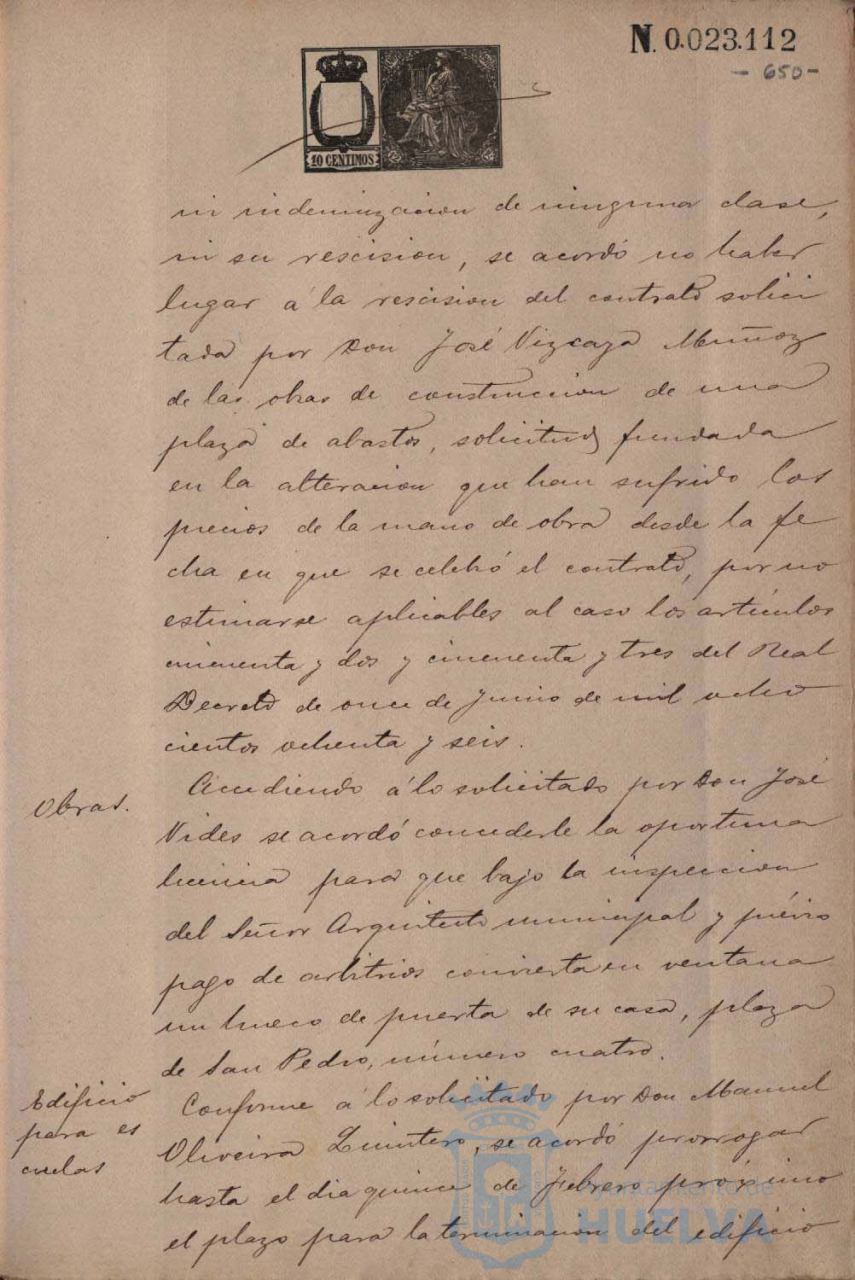 N. 0.023.112
- 650 -
10 CENTIMOS
ni indemnizacion de ninguna clase,
ni su rescision, se acordó no haber
lugar á la rescision del contrato solici
tada por Don José Vizcaya Muñoz
de las obras de construccion de una
plaza de abastos, solicitud fundada
en la alteracion que han sufrido los
precios de la mano de obra desde la fe
cha en que se celebró el contrato, por no
estimarse aplicables al caso los artículos
cincuenta y dos y cincuenta y tres del Real
Decreto de once de Junio de mil ocho
cientos ochenta y seis.
Obras.
Accediendo á lo solicitado por Don José
Vides se acordó concederle la oportuna
licencia para que bajo la inspeccion
del Señor Arquitecto municipal y prévio
pago de arbitrios convierta en ventana
un hueco de puerta de su casa, plaza
de San Pedro, número cuatro.
Edificio
para es
cuelas
Conforme á lo solicitado por Don Manuel
Oliveira Quintero, se acordó prorrogar
hasta el dia quince de Febrero próximo
el plazo para la terminacion del edificio
Ayuntamiento de
HUELVA